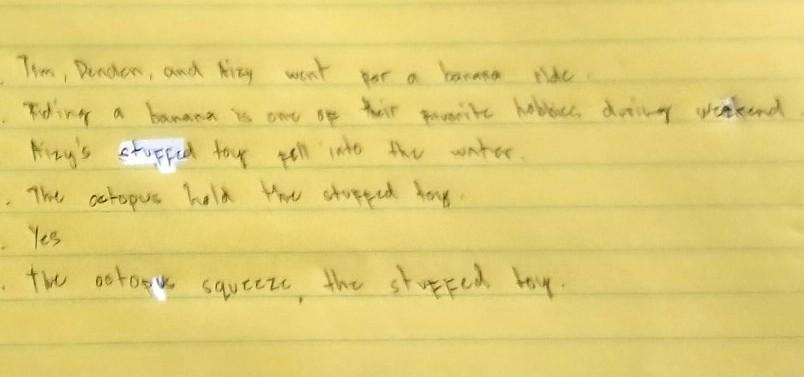 Tom, Denden, and Aizy went for a banana ride.
Riding a banana is one of their favorite hobbies during weekend.
Aizy's stuffed toy fell into the water.
. The octopus hold the stuffed toy.
. Yes
. the octopus squeeze, the stuffed toy.